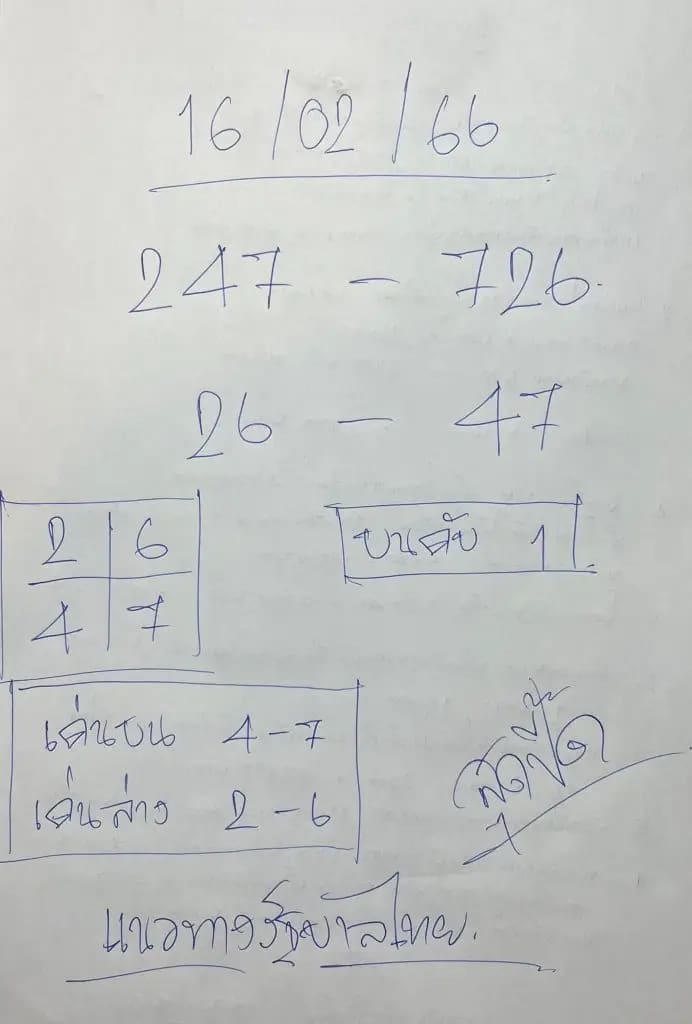 16/02/66
247 - 726
26 - 47
2 6
4 7
บนดับ 1
เด่นบน 4-7
เด่นล่าง 2-6
สุดปี๊ด
แนวทางรัฐบาลไทย.